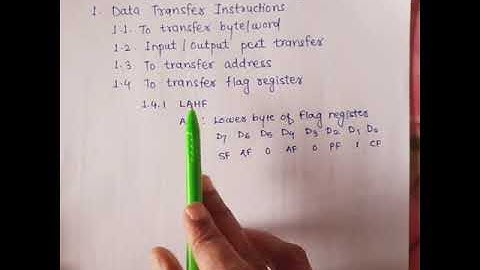 1. Data Transfer Instructions
1.1. To transfer byte/word
1.2. Input/Output port transfer
1.3 To transfer address
1.4 To transfer flag register
1.4.1 LAHF
: Lower byte of flag register
D7 D6 D5 D4 D3 D2 D1 D0
SF AF 0 AF 0 PF 1 CF